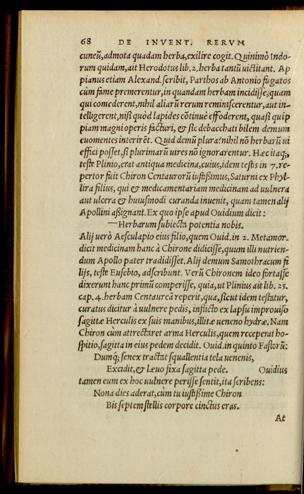 68 DE INVENT. RERVM
cuneū, admota quadam herba, exilire cogit. Quinimò Indo-
rum quidam, ait Herodotus lib. 2. herba tantū uictitant. Ap
pianus etiam Alexand. scribit, Parthos ab Antonio fugatos
cùm fame premerentur, in quandam herbam incidisse, quam
qui comederent, nihil aliarū rerum reminiscerentur, aut in-
telligerent, nisi quòd lapides cōtinuè effoderent, quasi quip
piam magni operis facturi, & sic debacchati bilem demum
euomentes interirēt. Quid demū plura? nihil nō herbarū ui
effici posset, si plurimarū uires nō ignorarentur. Hæc itaq;,
teste Plinio, erat antiqua medicina, cuius, idem teste in 7. re-
pertor fuit Chiron Centaurorū iustissimus, Saturni ex Phyl-
lira filius, qui & medicamentariam medicinam ad uulnera
aut ulcera & huiusmodi curanda inuenit, quam tamen alij
Apollini assignant. Ex quo ipse apud Ouidium dicit:
—Herbarum subiecta potentia nobis.
Alij uerò Aesculapio eius filio, quem Ouid. in 2. Metamor.
dicit medicinam hanc à Chirone didicisse, quum illi nutrien-
dum Apollo pater tradidisset. Alij demum Samothracum fi
lijs, teste Eusebio, adscribunt. Verū Chironem ideo fortasse
dixerunt hanc primū comperisse, quia, ut Plinius ait lib. 25.
cap. 4. herbam Centaureā reperit, qua, sicut idem testatur,
curatus dicitur à uulnere pedis, inflicto ex lapsu improuiso
sagittæ Herculis ex suis manibus, illitæ ueneno hydræ. Nam
Chiron cùm attrectaret arma Herculis, quem receperat ho-
spitio, sagitta in eius pedem decidit. Ouid. in quinto Fastorū:
Dumq́; senex tractat squallentia tela uenenis,
Excidit, & Læuo fixa sagitta pede. Ouidius
tamen eum ex hoc uulnere perisse sentit, ita scribens:
Nona dies aderat, cùm tu iustissime Chiron
Bis septem stellis corpore cinctus eras.
At